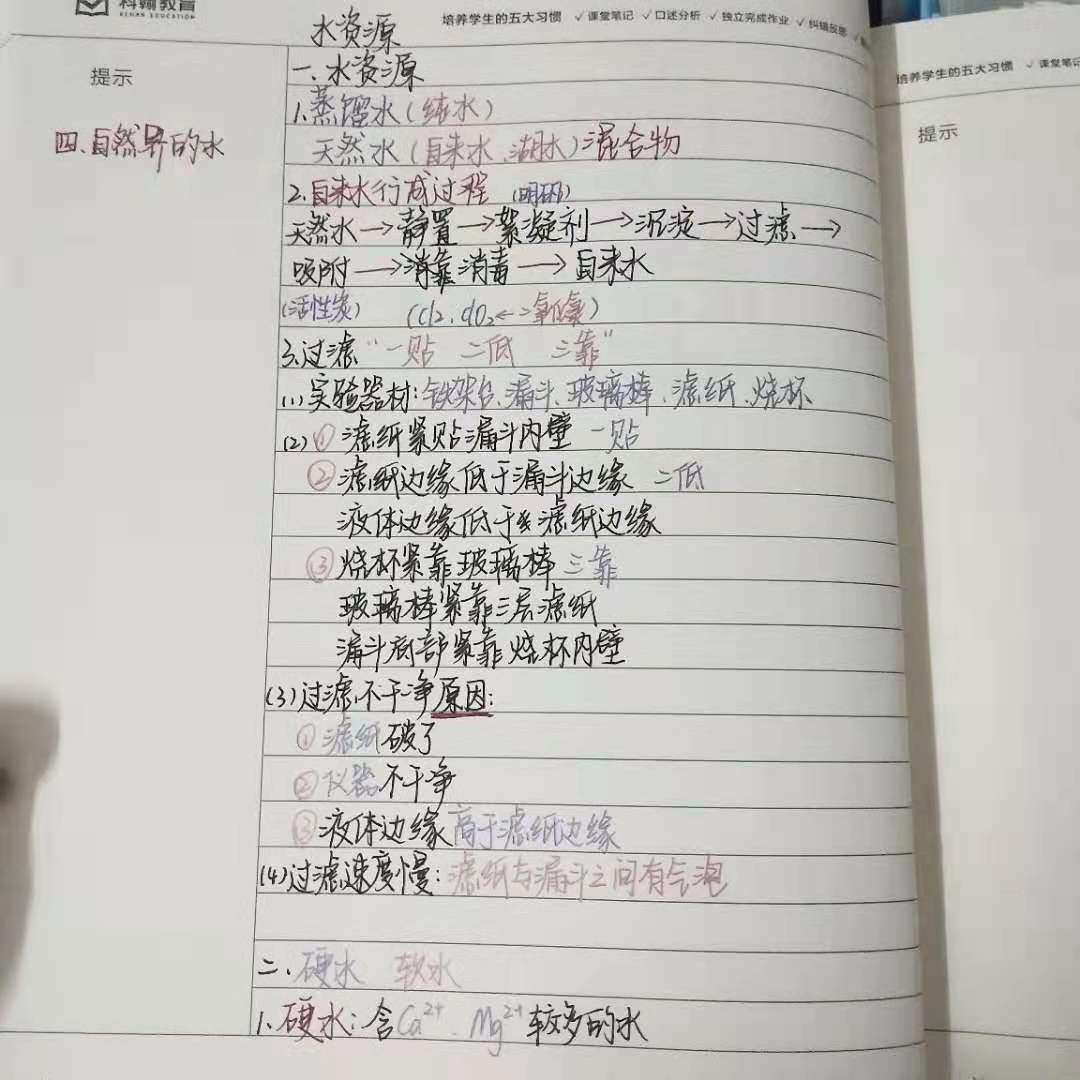 科翰教育
KEHAN EDUCATION
培养学生的五大习惯 ✓课堂笔记 ✓口述分析 ✓独立完成作业 ✓纠错反思
提示
四、自然界的水
水资源
一、水资源
1.蒸馏水(纯水)
天然水(自来水、湖水)混合物
2.自来水行成过程 (明矾)
天然水→静置→絮凝剂→沉淀→过滤→
吸附→消靠消毒→自来水
(活性炭) (Cl2、ClO2←二氧化氯)
3.过滤“一贴 二低 三靠”
(1)实验器材:铁架台、漏斗、玻璃棒、滤纸、烧杯
(2)①滤纸紧贴漏斗内壁 一贴
②滤纸边缘低于漏斗边缘 二低
液体边缘低于滤纸边缘
③烧杯紧靠玻璃棒 三靠
玻璃棒紧靠三层滤纸
漏斗底部紧靠烧杯内壁
(3)过滤不干净原因:
①滤纸破了
②仪器不干净
③液体边缘高于滤纸边缘
(4)过滤速度慢:滤纸与漏斗之间有气泡
二、硬水 软水
1.硬水:含Ca²⁺、Mg²⁺较多的水
培养学生的五大习惯 ✓课堂笔记
提示